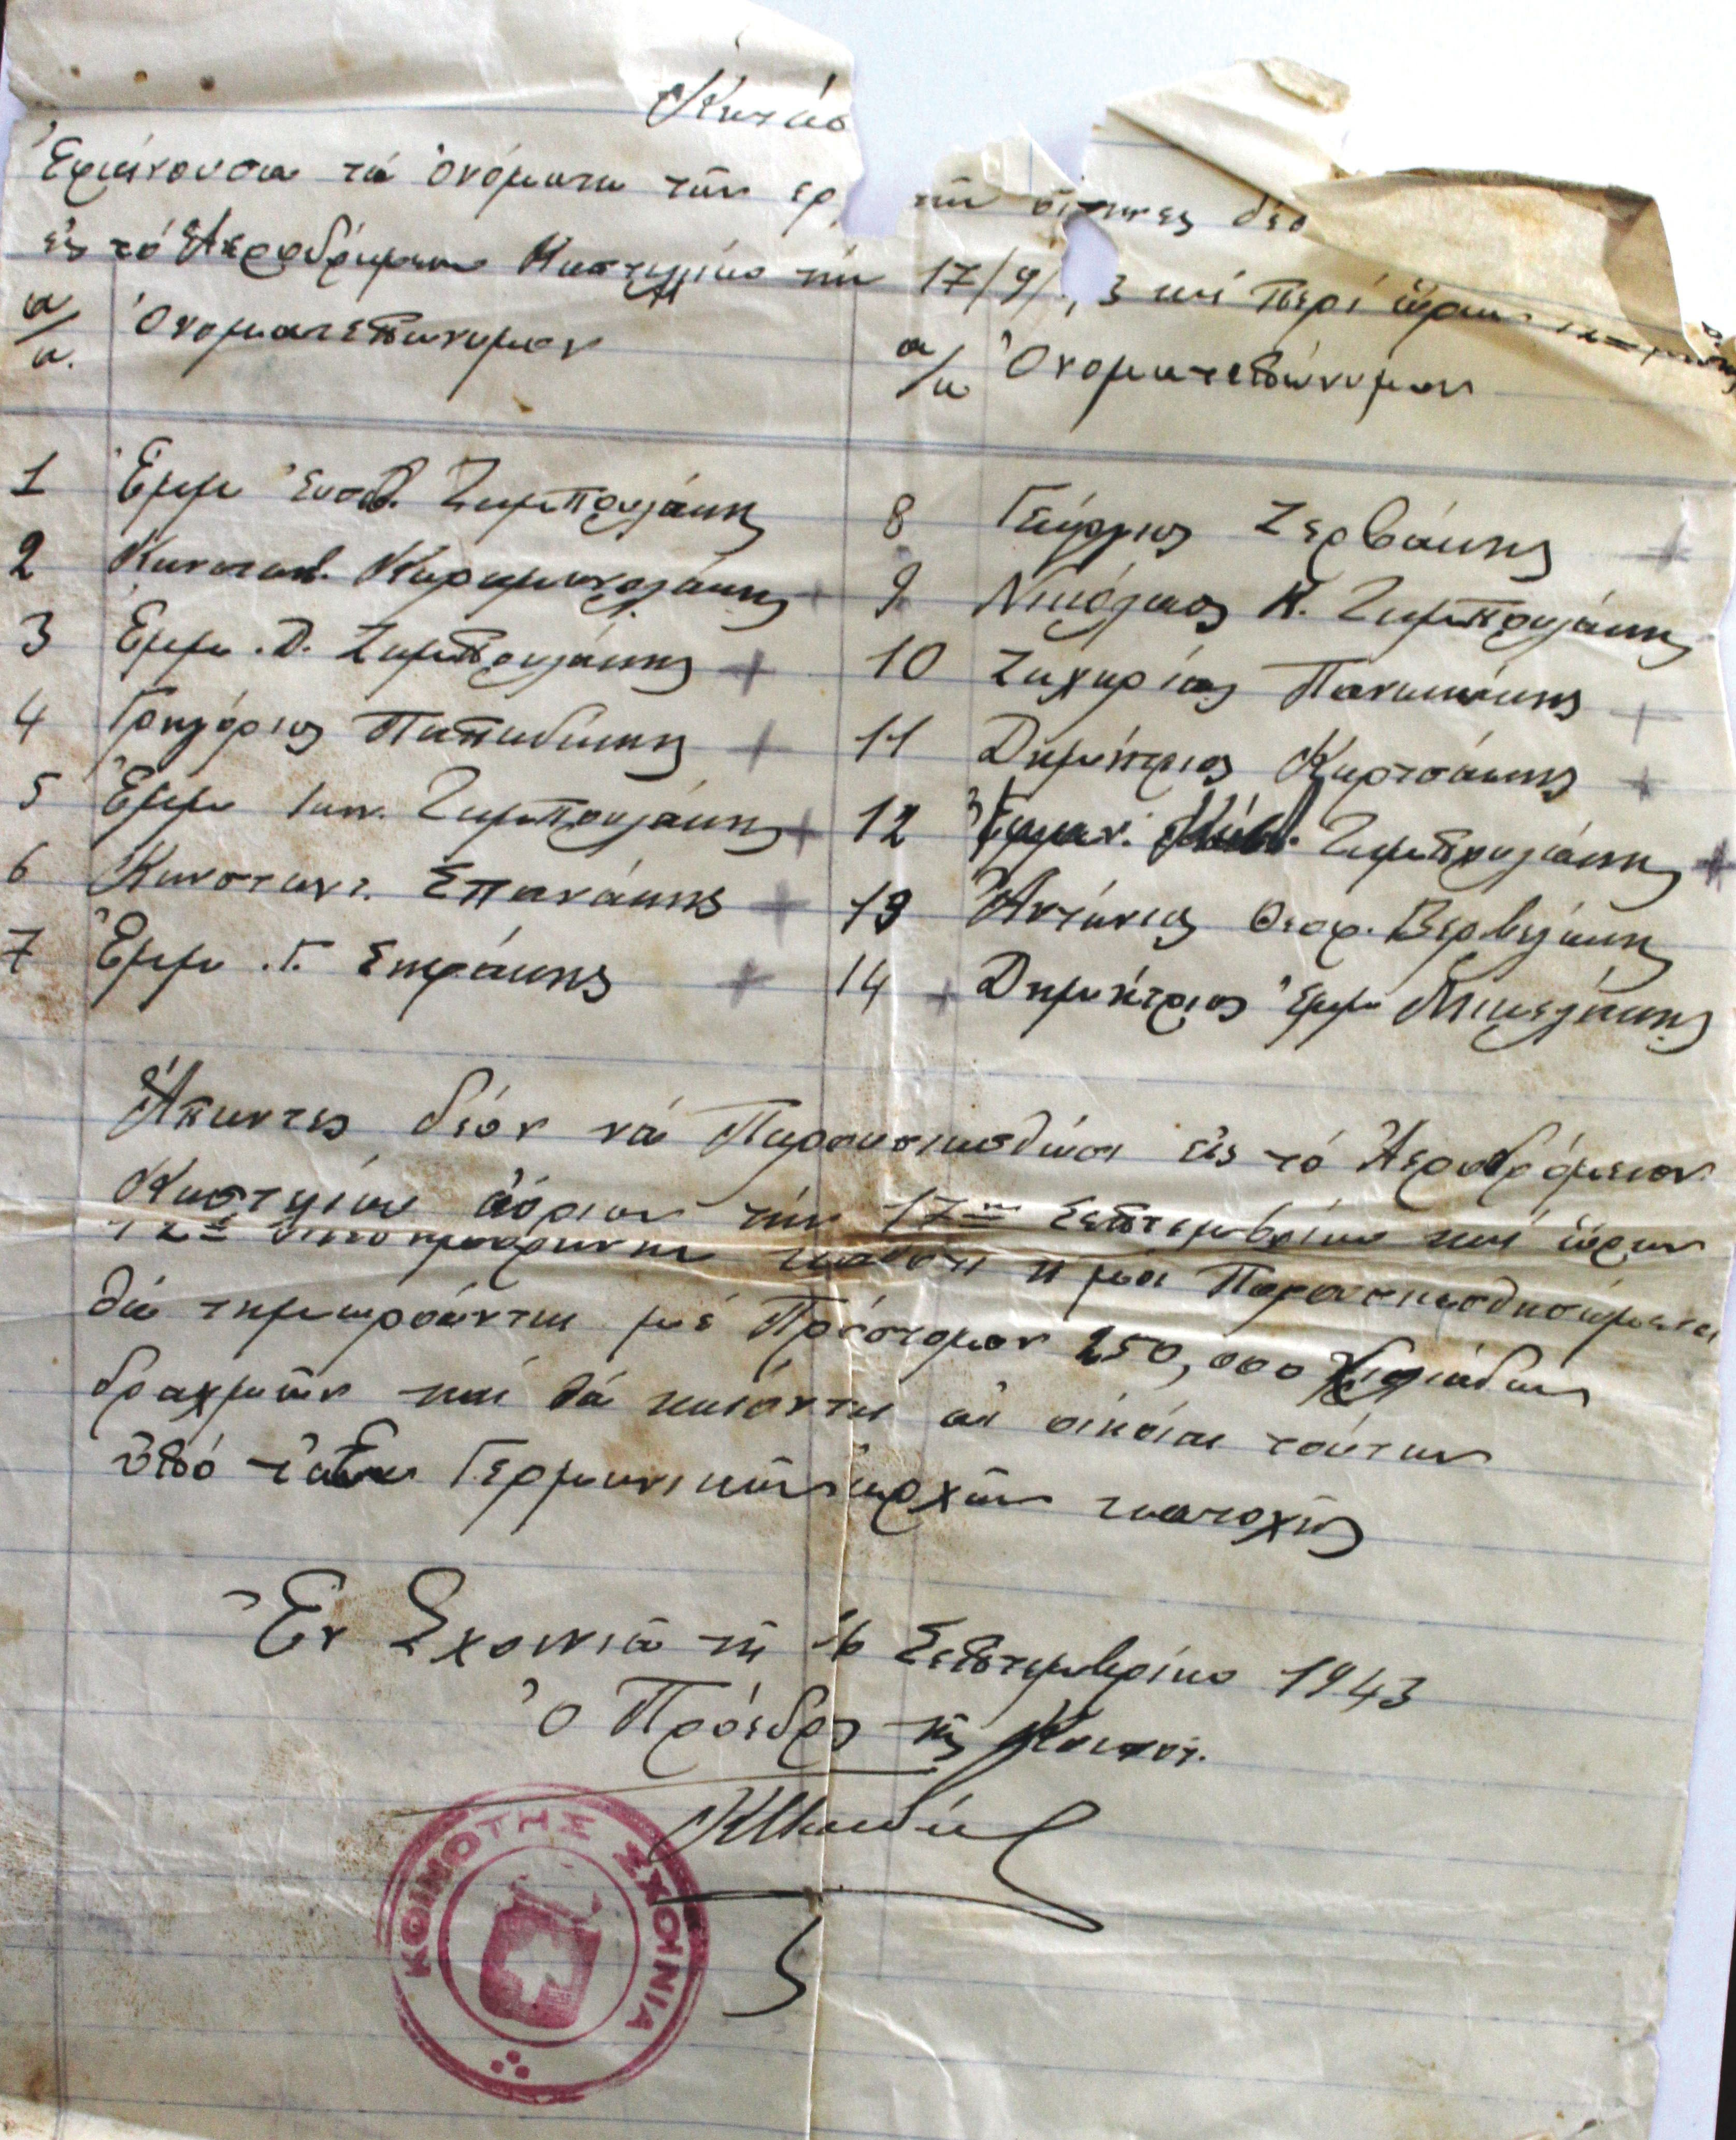 Ἐμφαίνουσα τά ὀνόματα τῶν ερ τῶν οἵτινες δέο
εἰς τό Ἀεροδρόμιον Καστελλίου τήν 17/9/ 3 καί περί ὥραν
α/α. Ὀνοματεπώνυμον α/α Ὀνοματεπώνυμον
1 Ἐμμ Ευσταθ. Ζαμπουλάκης 8 Γεώργιος Ζερβάκης +
2 Κωνσταντ. Καραμανωλάκης + 9 Νικόλαος Κ. Ζαμπουλάκης
3 Ἐμμ. Δ. Ζαμπουλάκης + 10 Ζαχαρίας Πανακάκης +
4 Γρηγόριος Παπαδάκης + 11 Δημήτριος Καρτσάκης +
5 Ἐμμ Ιων. Ζαμπουλάκης + 12 Ἐμμαν. Ζαμπουλάκης +
6 Κωνσταντ. Σπανάκης + 13 Ἀντώνιος Θεοφ. Βερβελάκης
7 Ἐμμ. Γ. Σηφάκης + 14 + Δημήτριος Ἐμμ Νικελάκης
Ἅπαντες δέον νά Παρουσιασθῶσι εἰς τό Ἀεροδρόμειον
Καστελίου αὔριον τήν 17ην Σεπτεμβρίου καί ὥραν
12ην καθότι η μοι Παρουσιασθησώμενοι
θά τημωροῦνται μέ Πρόστομον 250,000 χιλιάδων
δραχμῶν καί θά καίονται αἱ οἰκίαι τούτων
ὑπό τῶν Γερμανικῶν ἀρχῶν κατοχῆς
Ἐν Σχοινιᾶ τῇ 16 Σεπτεμβρίου 1943
Ὁ Πρόεδρος τῆς Κοινοτ.
ΚΟΙΝΟΤΗΣ ΣΧΟΙΝΙΑ